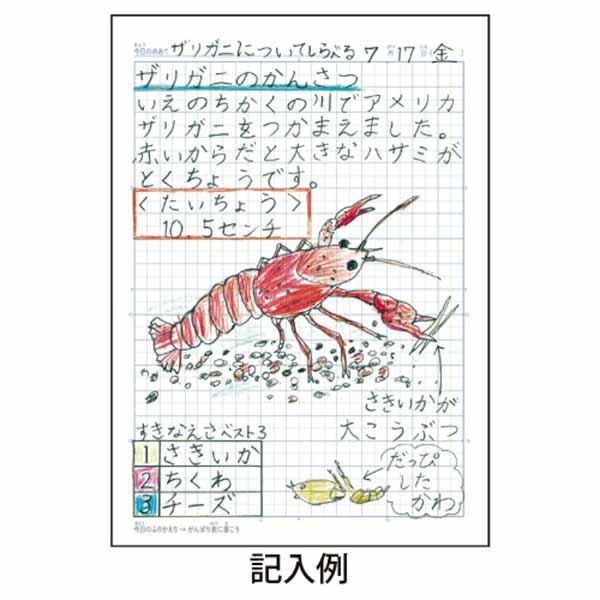 今日のめあて ザリガニについてしらべる 7月17日(金)
ザリガニのかんさつ
いえのちかくの川でアメリカ
ザリガニをつかまえました。
赤いからだと大きなハサミが
とくちょうです。
〈たいちょう〉
10.5センチ
さきいかが
大こうぶつ
すきなえさベスト3
1 さきいか
2 ちくわ
3 チーズ
だっぴ
した
かわ
今日のふりかえり→がんばり表に書こう
記入例